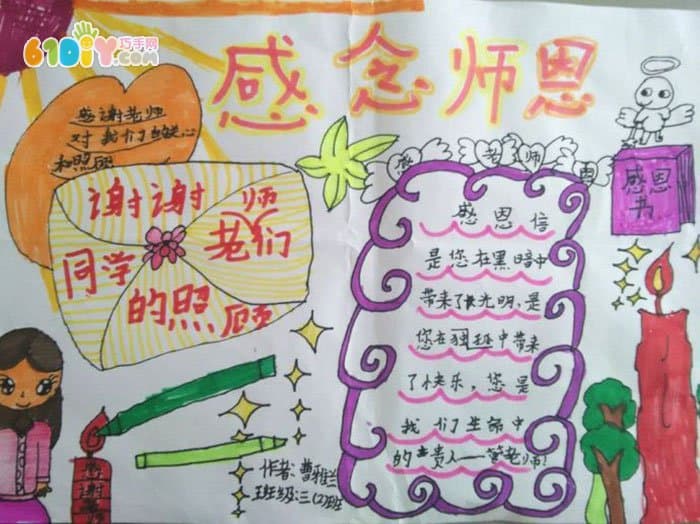 61DIY巧手网
.com
感念师恩
感谢老师
对我们的关心
和照顾
谢谢师
同学老们
的照顾
感老师恩
感恩信
是您在黑暗中
带来了光明,是
您在中带来
了快乐,您是
我们生命中
的贵人一老师!
感恩
书
感谢
作者:曹雅兰
班级:三(2)班